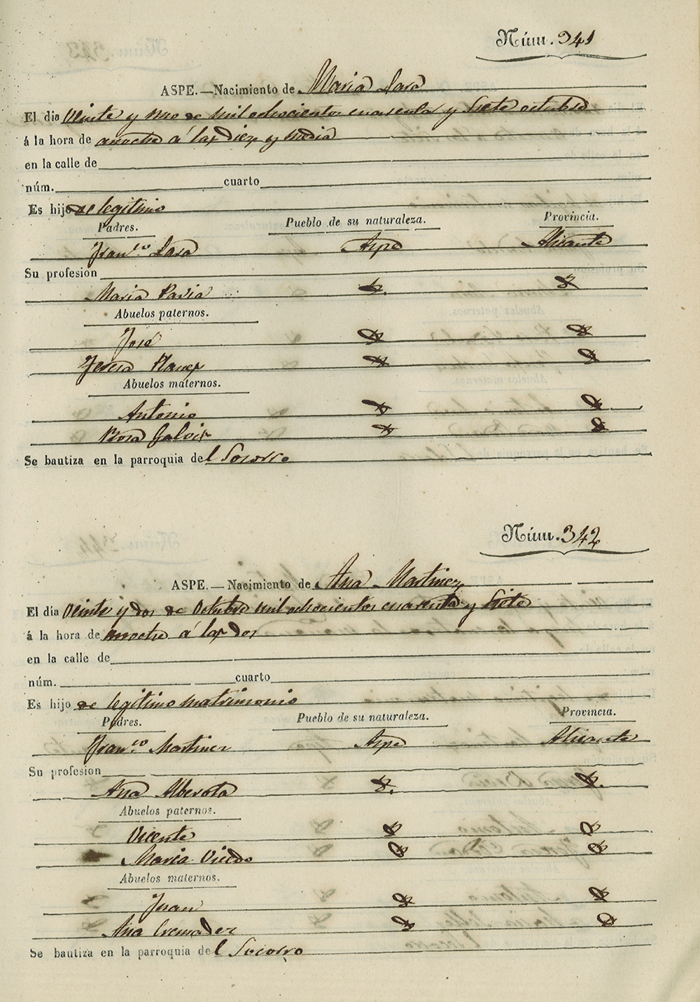 Núm. 341
ASPE.—Nacimiento de Maria Lara
El dia veinte y uno de mil ochocientos cuarenta y siete octubre
á la hora de anoche á las diez y media
en la calle de
núm. cuarto
Es hijo de legitimo
Padres. Pueblo de su naturaleza. Provincia.
Fran.co Lara Aspe Alicante
Su profesion
Maria Pavia
Abuelos paternos.
José
Teresa
Abuelos maternos.
Antonio
Rosa Galvis
Se bautiza en la parroquia del Socorro
Núm. 342
ASPE.—Nacimiento de Ana Martinez
El dia veinte y dos de Octubre mil ochocientos cuarenta y siete
á la hora de anoche á las dos
en la calle de
núm. cuarto
Es hijo de legitimo matrimonio
Padres. Pueblo de su naturaleza. Provincia.
Fran.co Martinez Aspe Alicante
Su profesion
Ana Alberola
Abuelos paternos.
Vicente
Maria
Abuelos maternos.
Juan
Ana Cremades
Se bautiza en la parroquia del Socorro